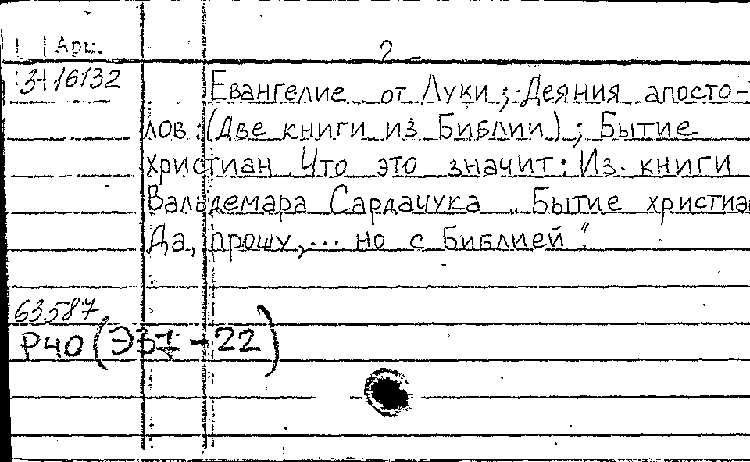 Арм. 2
3-16132
Евангелие от Луки; Деяния апосто-
лов: (Две книги из Библии); Бытие
христиан Что это значит: Из книги
Вальдемара Сардачука „Бытие христиа
Да, прошу,... но с Библией".
63587
Р40 (Э37-22)